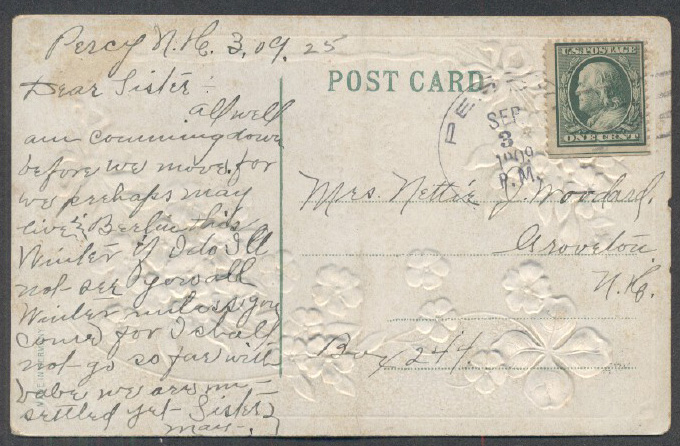 Percy N.H. 3, 09. 25
Dear Sister :-
all well
am comming down
before we move. for
we perhaps may
live in Berlin this
Winter if I do I'll
not see you all
Winter unless you
come, for I shall
not go so far with
babe we are un-
settled yet - Sister
May.
POST CARD
PE
SEP
3
1909
A.M.
U.S. POSTAGE
ONE CENT
Mrs. Nettie J. Woodard.
Groveton,
N.H.
Box 244.